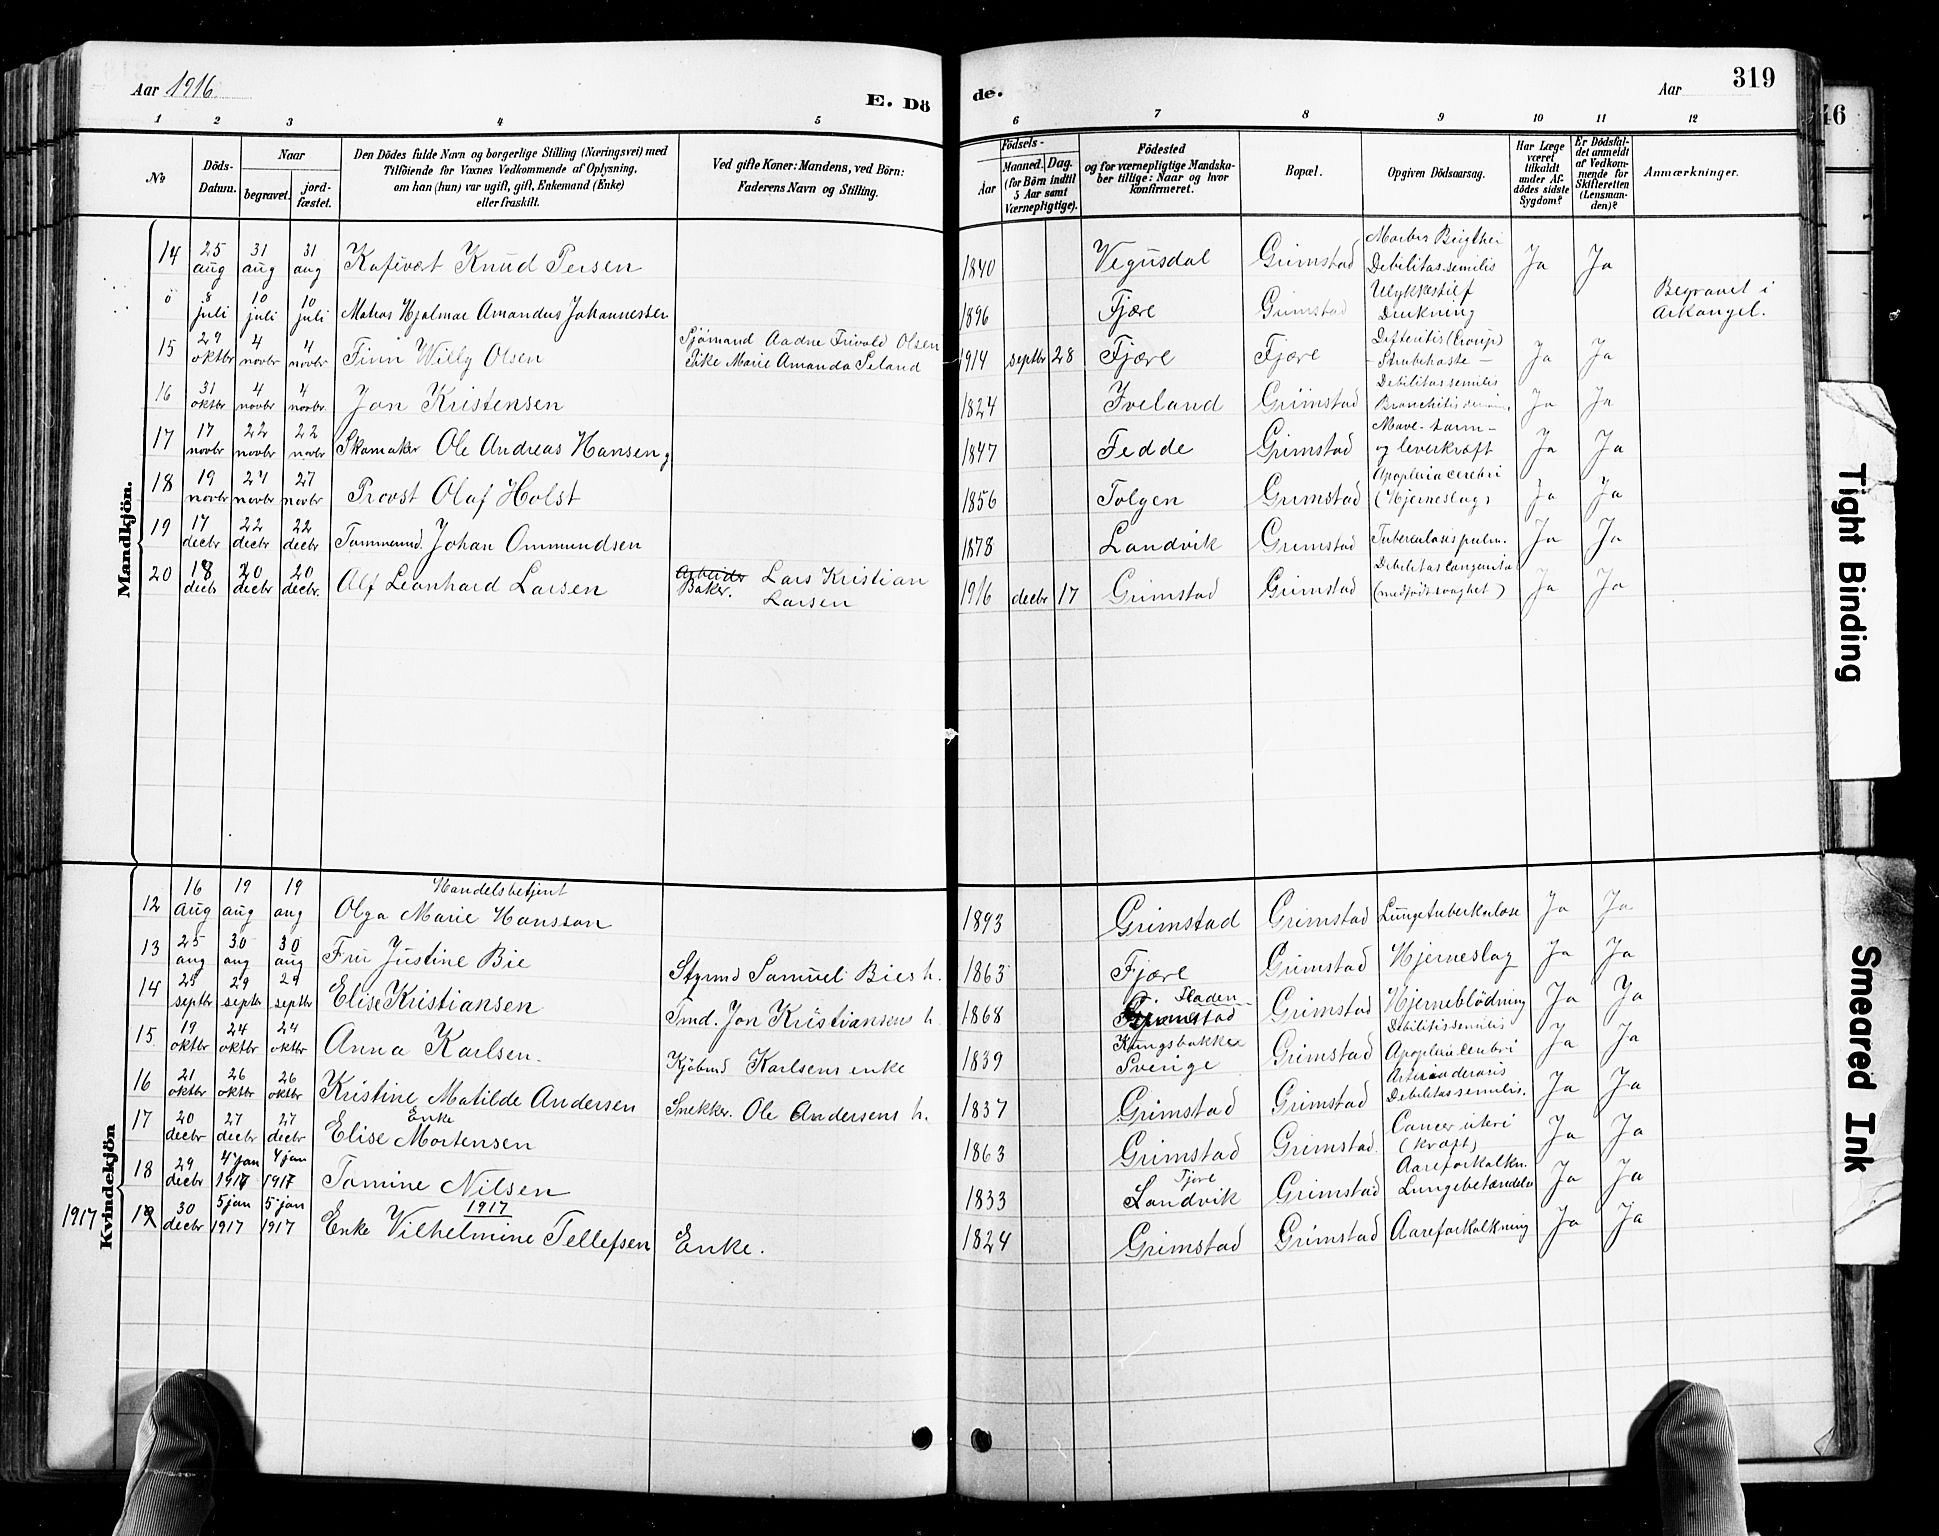 Aar 1916
E. Dö
de.
Aar
319
46
1 2 3 4 5 6 7 8 9 10 11 12
No
Döds-Datum.
Naar
begravet.
jord-fæstet.
Den Dödes fulde Navn og borgerlige Stilling (Næringsvei) med
Tilföiende for Voxnes Vedkommende af Oplysning,
om han (hun) var ugift, gift, Enkemand (Enke)
eller fraskilt.
Ved gifte Koner: Mandens, ved Börn:
Faderens Navn og Stilling.
Födsels-
Aar
Maaned. Dag.
(for Börn indtil
5 Aar samt
Værnepligtige).
Födested
og for værnepligtige Mandska-
ber tillige: Naar og hvor
konfirmeret.
Bopæl.
Opgiven Dödsaarsag.
Har Læge
været
tilkaldt
under Af-
dödes sidste
Sygdom?
Er Dödsfal-
det anmeldt
af Vedkom-
mende for
Skifteretten
(Lensman-
den)?
Anmærkninger.
Mandkjön.
14 25 aug 31 aug 31 aug Knud Persen 1840 Vegusdal Grimstad Morbus Debilitas senilis Ja Ja
0 8 juli 10 juli 10 juli Matros Hjalmar Amandus Johannessen 1896 Fjære Grimstad Drukning Begravet i Arkangel.
15 29 oktbr 4 novbr 4 novbr Finn Willy Olsen Sjömand Aadne Frivald Olsen Pike Marie Amanda Seland 1914 septbr 28 Fjære Fjære Defteritis (Croup) - Strubehoste - Ja Ja
16 31 oktbr 4 novbr 4 novbr. Jon Kristensen 1824 Iveland Grimstad Debilitas senilis Bronchitis Ja Ja
17 17 novbr 22 novbr 22 novbr Skomaker Ole Andreas Hansen 1847 Fedde Grimstad Mave-tarm- og leverkræft Ja Ja
18 19 novbr 27 novbr Provst Olaf Holst 1856 Tolgen Grimstad Apoplexia cerebri (Hjerneslag) Ja Ja
19 17 decbr 22 decbr 22 decbr Tömmermd. Johan Ommundsen 1878 Landvik Grimstad Tuberculosis pulm. Ja Ja
20 18 decb 20 decbr 20 decbr. Alf Leonhard Larsen Arbeider Baker. Lars Kristian Larsen 1916 decbr 17 Grimstad Grimstad Debilitas congenita (medfödt svaghet) Ja Ja
Kvindekjön
12 16 aug 19 aug 19 aug Handelsbetjent Olga Marie Hansson 1893 Grimstad Grimstad Lungetuberkulose Ja Ja
13 25 aug 30 aug 30 aug Fru Justine Bie Stymd Samuel Bies h. 1863 Fjære Grimstad Hjerneslag Ja Ja
14 25 septbr 29 septbr 29 septbr Elise Kristiansen Tmd. Jon Kristiansens h. 1868 Grimstad Hjerneblödning Ja Ja
15. 19 oktbr 24 oktbr 24 oktbr Anna Karlsen. Kjöbmd Karlsens enke 1839 Kungsbakke Sverige Grimstad Debilitis senilis Apoplexia cerebri Ja Ja
16 21 oktbr 26 oktbr 26 oktbr Kristine Matilde Andersen Snekker. Ole Andersens h. 1837 Grimstad Grimstad Debilitas senilis. Ja Ja
17 20 decbr 27 decbr 27 decbr Enke Elise Mortensen 1863 Grimstad Grimstad. Cancer uteri (kræft) Ja Ja
18 29 decbr 4 jan 1917 4 jan 1917 Tomine Nilsen 1833 Fjære Landvik Grimstad Aareforkalkn. Lungebetændelse Ja Ja
1917
1917 19 30 decbr 5 jan 1917 5 jan 1917 Enke Vilhelmine Tellefsen Enke. 1824 Grimstad Grimstad Aareforkalkning Ja Ja
Tight Binding
Smeared Ink